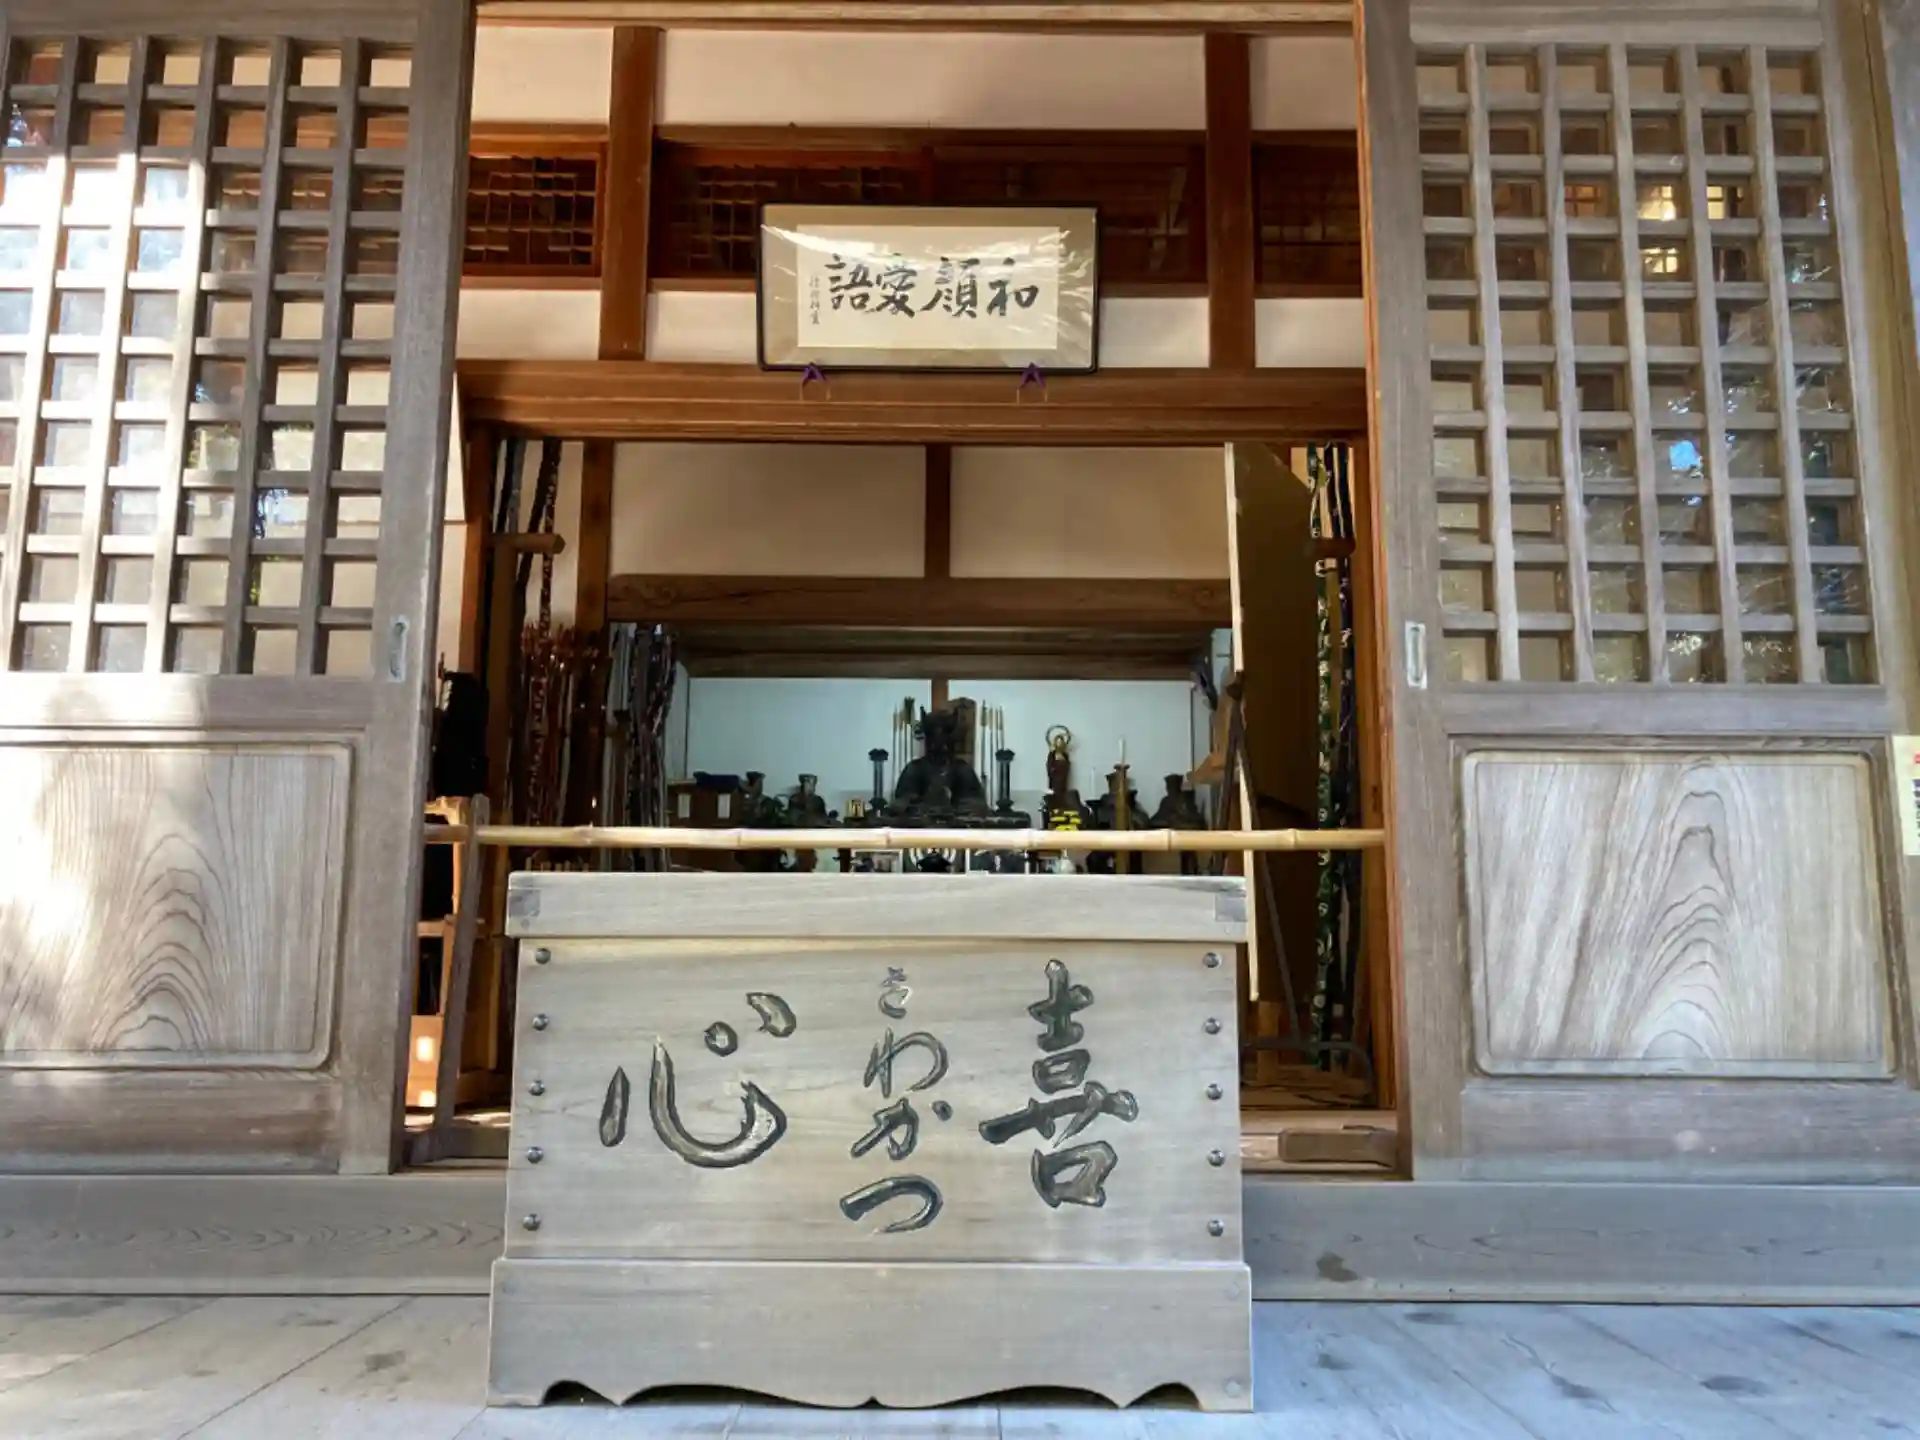 和顔愛語
喜
さわかつ
心